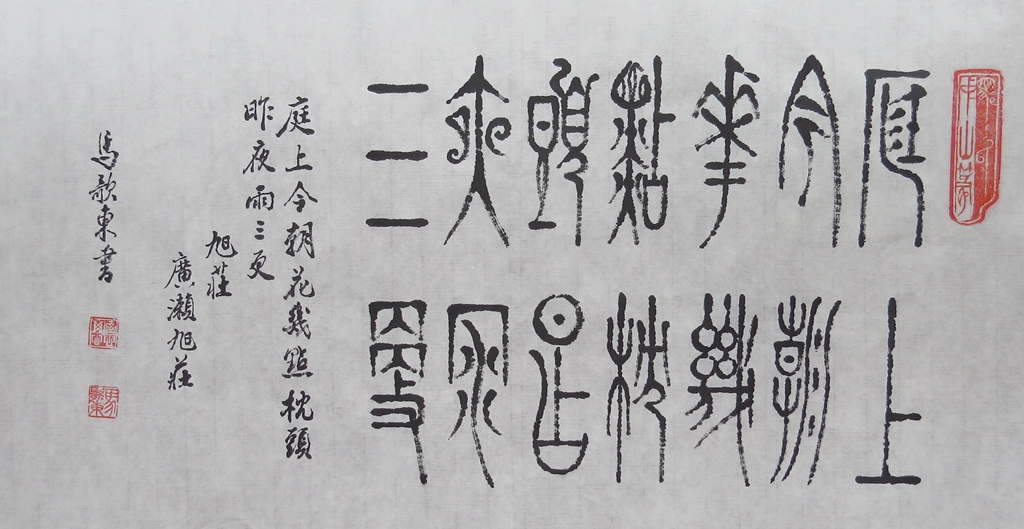 庭上
今朝
華幾
點枕
頭昨
夜雨
三更
庭上今朝花幾點枕頭
昨夜雨三更
旭莊
廣瀨旭莊
馬歌東書
馬歌東